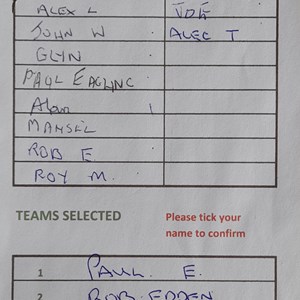 ALEX L JOE
JOHN W ALEC T
GLYN
PAUL EAGLING
Alan
MANSEL
ROB E
ROY M.
TEAMS SELECTED Please tick your
name to confirm
1 PAUL. E.
2 ROB. EDDEN